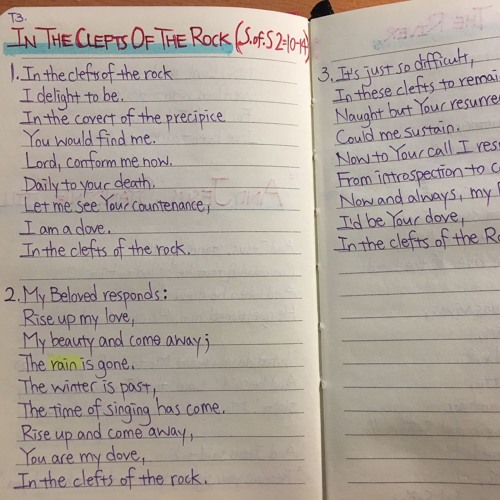 T3.
IN THE CLEFTS OF THE ROCK (S.of.S 2=10-14)
1. In the clefts of the rock
I delight to be.
In the covert of the precipice
You would find me.
Lord, conform me now.
Daily to your death.
Let me see Your countenance,
I am a dove.
In the clefts of the rock.
2. My Beloved responds:
Rise up my love,
My beauty and come away;
The rain is gone.
The winter is past,
The time of singing has come.
Rise up and come away,
You are my dove,
In the clefts of the rock.
3. It's just so difficult,
In these clefts to
Naught but Your
Could me sustain.
Now to Your call I
From introspection to
Now and always, my
I'd be Your dove,
In the clefts of the